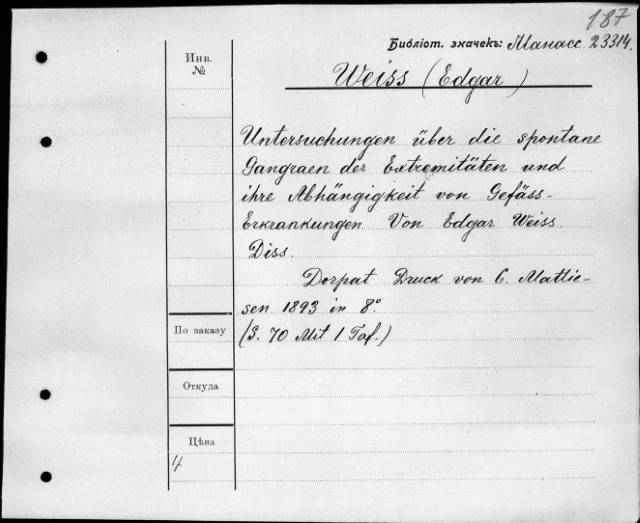 187
Библіот. значекъ: Манасс. 23314.
Инв.
№
Weiss (Edgar)
Untersuchungen über die spontane
Gangraen der Extremitäten und
ihre Abhängigkeit von Gefäss-
Erkrankungen Von Edgar Weiss.
Diss.
Dorpat Druck von C. Mattie-
sen 1893 in 8°.
(S. 70 Mit 1 Taf.)
По заказу
Откуда
Цѣна
4